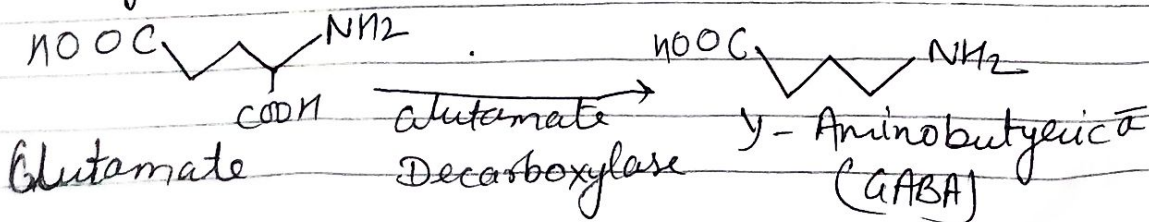 HOOC NH2 HOOC NH2
COOH
Glutamate Glutamate Decarboxylase γ- Aminobutyric a
(GABA)